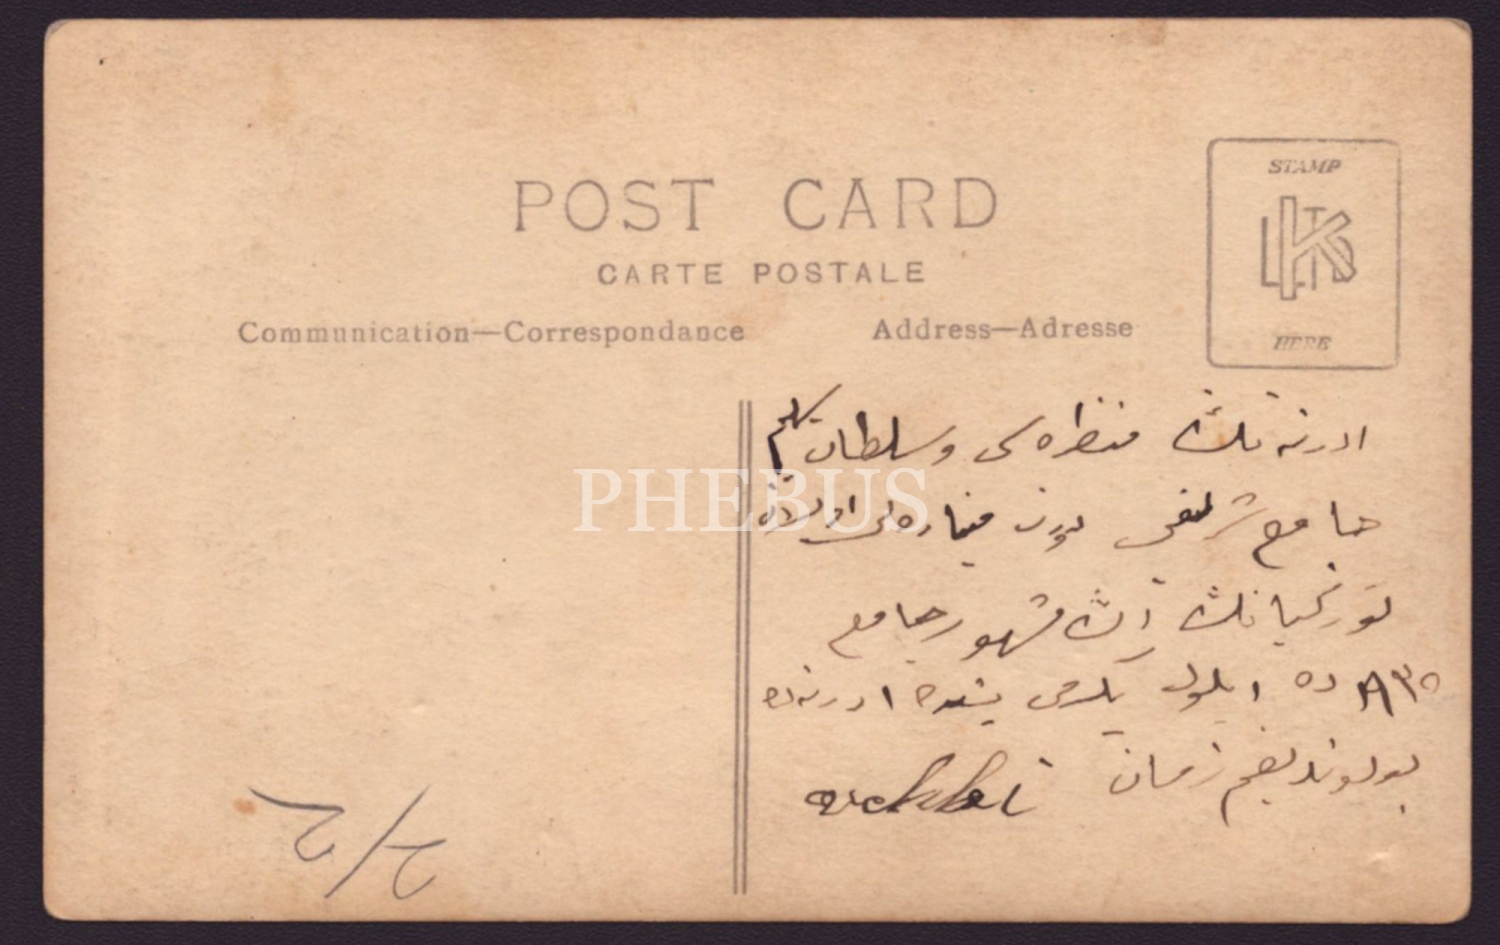 POST CARD
CARTE POSTALE
Communication—Correspondance
Address—Adresse
STAMP
HERE
PHEBUS
ادرنه نك منظره سی و سلطان سلیم
جامع شریفی دورت مناره لی اولان
توركیانك اڭ مشهور جامع
٣٥ ده ایلول یكرمی بشده ادرنه ده
بولوندیغم زمان